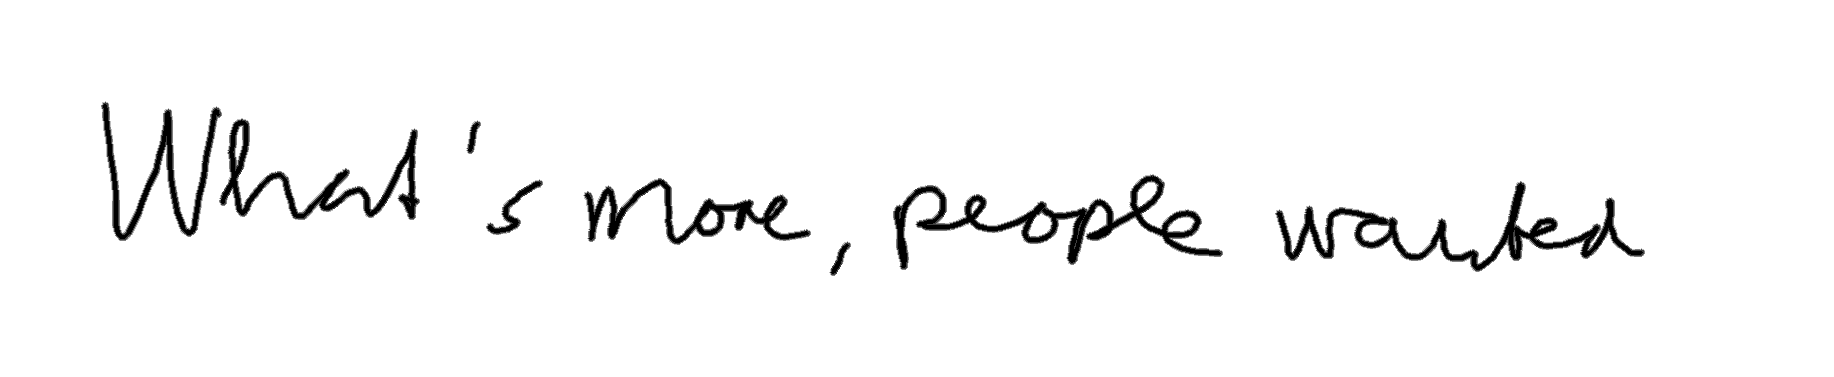 What's more, people wanted